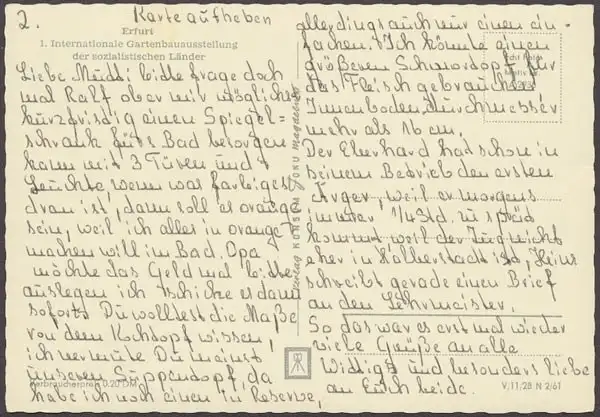 2. Karte aufheben
Erfurt
1. Internationale Gartenbauausstellung
der sozialistischen Länder
Liebe Mutti bitte frage doch
mal Ralf ober mir möglichst
kurzfristig einen Spiegel=
schrank fürs Bad besorgen
kann mit 3 Türen und 1
Leuchte, wenn was farbiges
dran ist, dann soll es orange
sein, weil ich alles in orange
machen will im Bad. Opa
möchte das Geld mal bitte
auslegen ich schicke es dann
sofort. Du wolltest die Maße
von dem Kochtopf wissen,
ich vermute Du meinst
unseren Suppentopf, da
habe ich noch einen in Reserve,
Verbraucherpreis 0,20 DM
Verlag KONSUM FOKU Magdeburg
allerdings auch nur einen ein-
fachen. Ich könnte einen
größeren Schmortopf für
das Fleisch gebrauchen
Innenbodendurchmesser
mehr als 16 cm.
Der Eberhard hat schon in
seinem Betrieb den ersten
Ärger, weil er morgens
immer 1/4 Std. zu spät
kommt, weil der Zug nicht
eher in Halberstadt ist, Heinz
schreibt gerade einen Brief
an den Lehrmeister.
So das war es erst mal wieder
viele Grüße an alle
und besonders liebe
an Euch beide.
Echt Foto
V 11 28 N 2/61